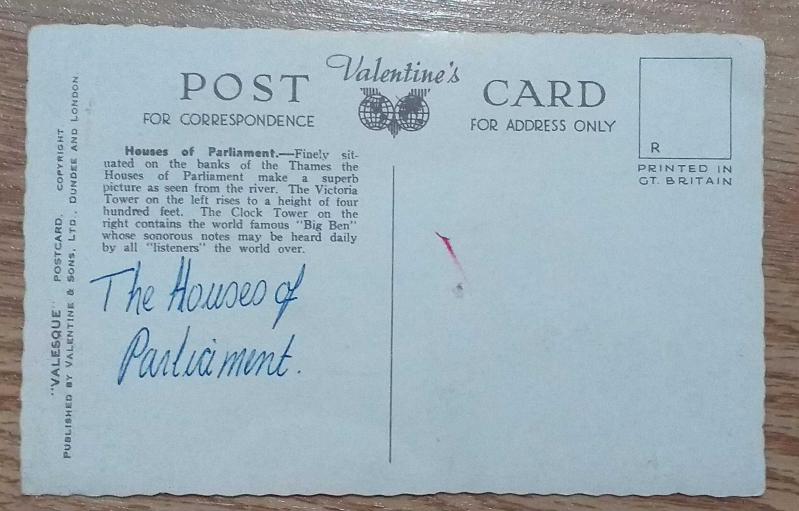 Valentine's
POST CARD
FOR CORRESPONDENCE
FOR ADDRESS ONLY
R
PRINTED IN
GT. BRITAIN
Houses of Parliament.—Finely sit-
uated on the banks of the Thames the
Houses of Parliament make a superb
picture as seen from the river. The Victoria
Tower on the left rises to a height of four
hundred feet. The Clock Tower on the
right contains the world famous "Big Ben"
whose sonorous notes may be heard daily
by all "listeners" the world over.
The Houses of
Parliament.
"VALESQUE" POSTCARD. COPYRIGHT
PUBLISHED BY VALENTINE & SONS, LTD., DUNDEE AND LONDON.